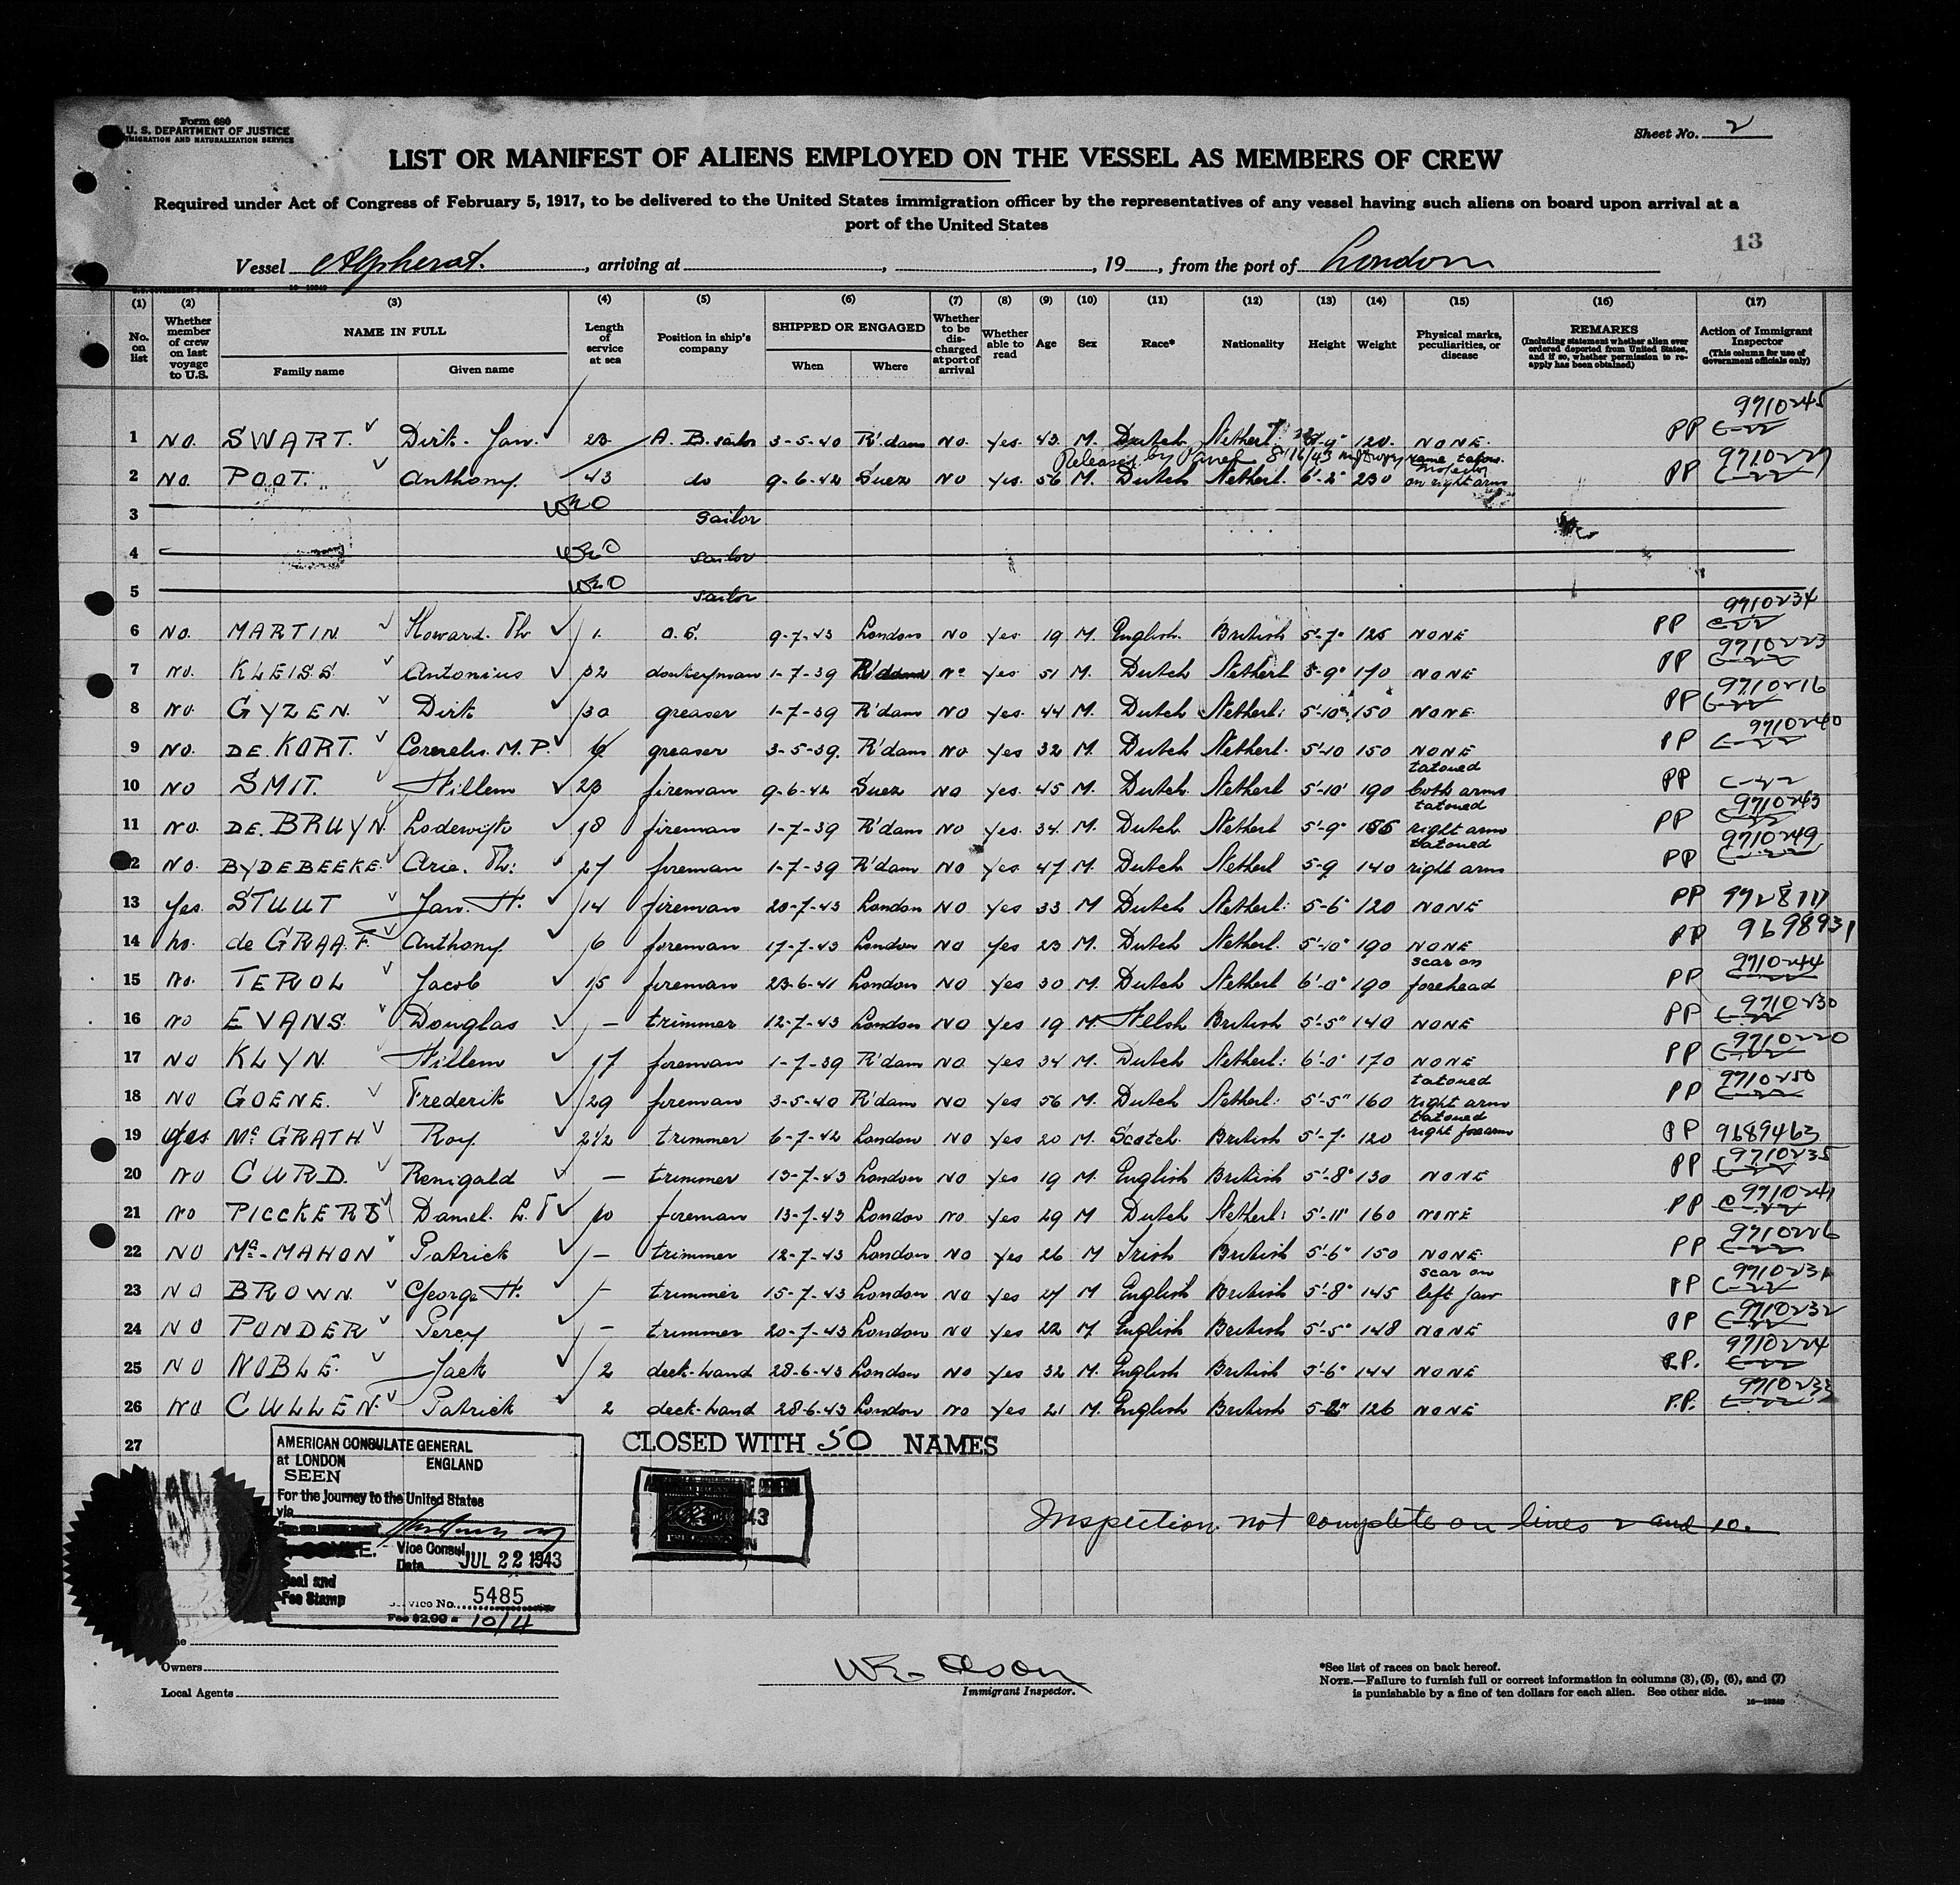 Form 680
U. S. DEPARTMENT OF JUSTICE
IMMIGRATION AND NATURALIZATION SERVICE
Sheet No. 2
LIST OR MANIFEST OF ALIENS EMPLOYED ON THE VESSEL AS MEMBERS OF CREW
Required under Act of Congress of February 5, 1917, to be delivered to the United States immigration officer by the representatives of any vessel having such aliens on board upon arrival at a
port of the United States
13
Vessel Alpherat. , arriving at , , 19 , from the port of London
(1) (2) (3) (4) (5) (6) (7) (8) (9) (10) (11) (12) (13) (14) (15) (16) (17)
No. on list
Whether member of crew on last voyage to U.S.
NAME IN FULL
Family name Given name
Length of service at sea
Position in ship's company
SHIPPED OR ENGAGED
When Where
Whether to be discharged at port of arrival
Whether able to read
Age
Sex
Race*
Nationality
Height
Weight
Physical marks, peculiarities, or disease
REMARKS
(Including statement whether alien ever ordered deported from United States, and if so, whether permission to reapply has been obtained)
Action of Immigrant Inspector
(This column for use of Government officials only)
1 NO. SWART. Dirk. Jan. 23 A. B. sailor 3-5-40 R'dam NO. Yes. 43 M. Dutch Netherl. 5'-9" 120. NONE. PP 9710245
Released by Parrel 8/16/43
2 NO. POOT. Anthony. 43 do 9-6-42 Suez NO Yes. 56 M. Dutch Netherl. 6'-2" 230 on right arm PP C-22
3 WEO sailor
4 WEO sailor
5 WEO sailor
6 NO. MARTIN Howard. Th 1. O.S. 9-7-43 London NO Yes 19 M. English. British 5'-7" 125 NONE PP 9710234
7 NO. KLEISS. Antonius 32 donkeyman 1-7-39 R'dam NO Yes. 51 M. Dutch Netherl 5'-9" 170 NONE PP 9710223
8 NO. GYZEN. Dirk 30 greaser 1-7-39 R'dam NO Yes. 44 M. Dutch Netherl: 5'-10" 150 NONE PP 9710216
9 NO. DE KORT. Corenelis. M. P. greaser 3-5-39. R'dam NO. Yes 32 M. Dutch Netherl. 5'-10 150 NONE PP 9710240
10 NO SMIT. Willem 23 fireman 9-6-42 Suez NO Yes. 45 M. Dutch Netherl 5'-10' 190 tatoued both arms PP C-22
11 NO. DE. BRUYN. Lodewijk 18 fireman 1-7-39 R'dam NO Yes. 34. M. Dutch Netherl 5'-9" 155 tatoued right arm PP 9710243
12 NO. BYDEBEEKE. Arie. Th: 27 fireman 1-7-39 R'dam NO Yes. 47 M. Dutch Netherl 5-9 140 tatoued right arm PP 9710249
13 Yes. STUUT Jan. H. 14 fireman 20-7-43 London NO Yes 33 M Dutch Netherl: 5-6 120 NONE PP
14 no. de GRAAF. Anthony 6 fireman 17-7-43 London NO Yes 23 M. Dutch Netherl. 5'-10" 190 NONE PP 9698931
15 No. TEROL Jacob 15 fireman 23-6-41 London NO Yes 30 M. Dutch Netherl 6'-0" 190 scar on forehead PP 9710244
16 NO EVANS. Douglas — trimmer 12-7-43 London NO Yes 19 M. Welsh British 5'-5" 140 NONE PP 9710230
17 NO KLYN. Willem 17 fireman 1-7-39 R'dam NO. Yes 34 M. Dutch Netherl: 6'-0" 170 NONE PP 9710220
18 NO GOENE. Frederik 29 fireman 3-5-40 R'dam NO Yes 56 M. Dutch Netherl: 5'-5" 160 tatoued right arm PP 9710250
19 yes Mc GRATH Roy 2 1/2 trimmer 6-7-42 London NO Yes 20 M. Scotch. British 5'-7" 120 tatoued right forearm PP 9689463
20 NO CURD. Renigald — trimmer 13-7-43 London NO Yes 19 M. English British 5'-8" 130 NONE PP 9710235
21 NO PICCKERS Daniel. L. T 10 fireman 13-7-43 London NO. Yes 29 M Dutch Netherl: 5'-11" 160 NONE PP 9710241
22 NO Mc-MAHON Patrick — trimmer 12-7-43 London NO Yes 26 M Irish British 5'-6" 150 NONE PP 9710226
23 NO BROWN. George H. — trimmer 15-7-43 London NO Yes 27 M English British 5'-8" 145 scar on left jaw PP
24 NO PONDER Percy — trimmer 20-7-43 London NO Yes 22 M English British 5'-5" 148 NONE PP 9710232
25 NO NOBLE. Jack 2 deck-hand 28-6-43 London NO Yes 32 M. English British 5'-6" 144 NONE P.P. 9710224
26 NO CULLEN. Patrick 2 deck-hand 28-6-43 London NO Yes 21 M. English British 126 NONE P.P. 9710233
27
CLOSED WITH 50 NAMES
AMERICAN CONSULATE GENERAL
at LONDON ENGLAND
SEEN
For the journey to the United States
via
Vice Consul
Date JUL 22 1943
Seal and
Fee Stamp
Service No. 5485
Fee $2.00 = 10/4
Inspection not complete on lines 2 and 10.
Owners
Local Agents
WE Olson
Immigrant Inspector.
*See list of races on back hereof.
NOTE.—Failure to furnish full or correct information in columns (3), (5), (6), and (7)
is punishable by a fine of ten dollars for each alien. See other side.